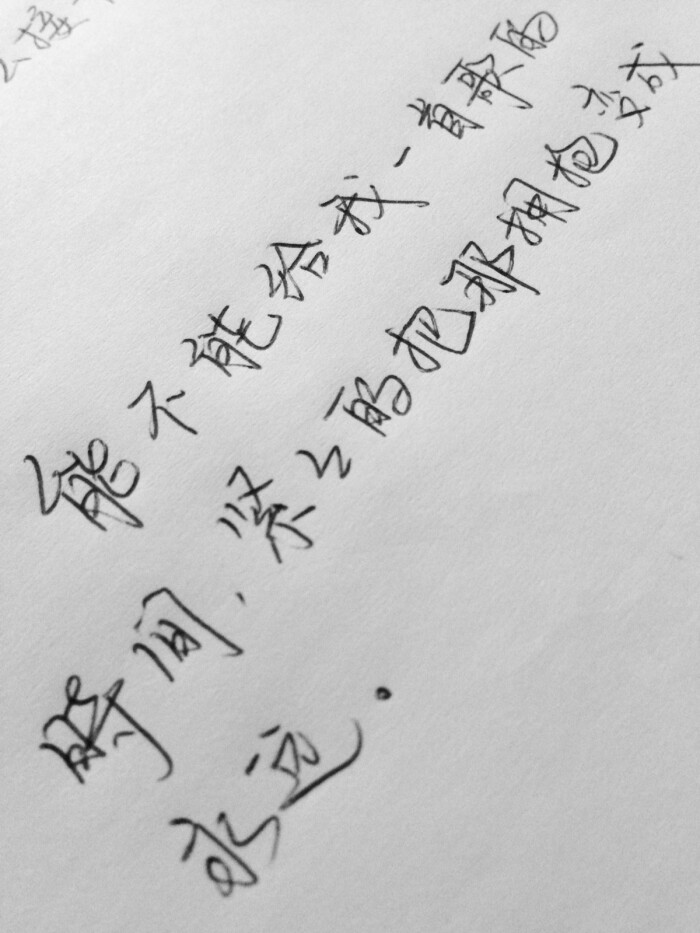 接
能不能给我一首歌的
時间,紧々的把那拥抱变成
永远.